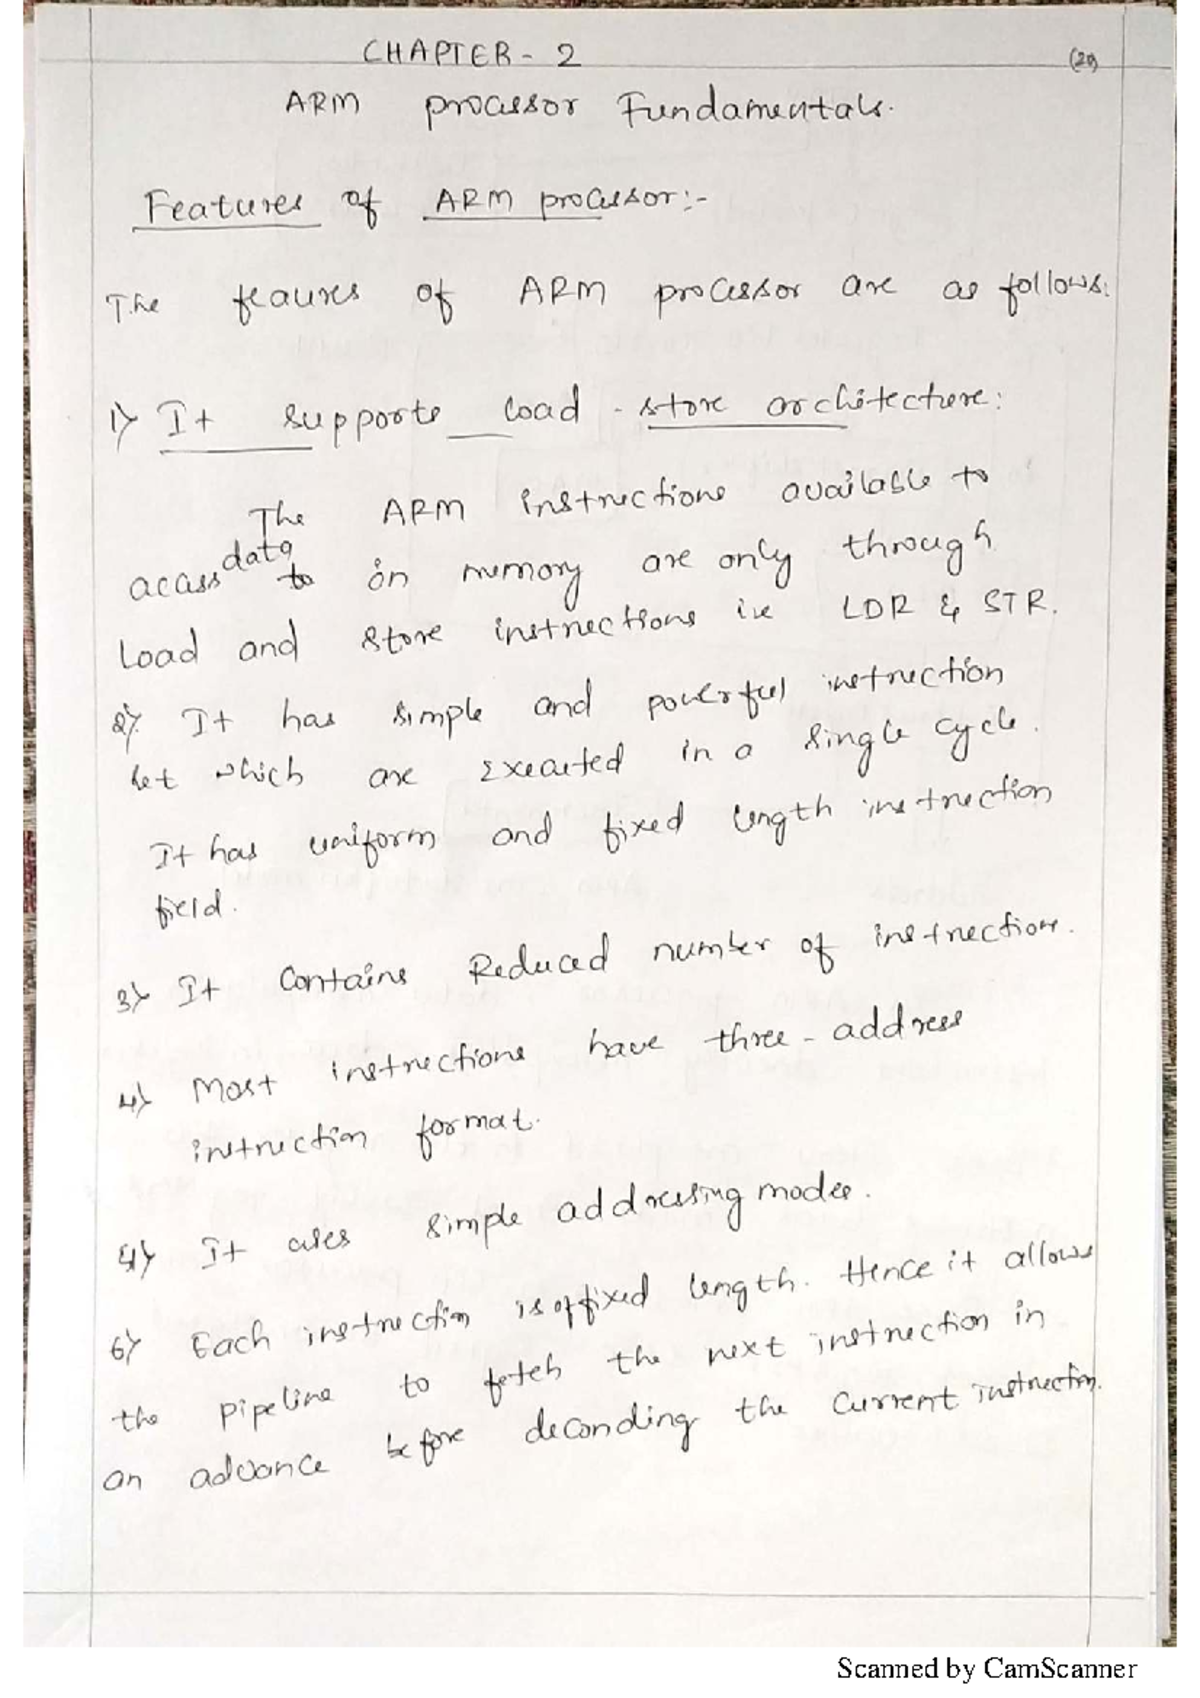 CHAPTER - 2
(20)
ARM processor Fundamentals.
Features of ARM processor:-
The feaures of ARM processor are as follows:
1) It supports load - store architecture:
The ARM instructions available to
access data to in memory are only through
load and store instructions ie LDR & STR.
2) It has simple and powerful instruction
set which are Executed in a single cycle.
It has uniform and fixed length instruction
field.
3) It Contains Reduced number of instruction.
4) Most instructions have three - address
instruction format.
5) It uses simple addressing modes.
6) Each instruction is of fixed length. Hence it allows
the pipeline to fetch the next instruction in
an advance before deconding the current instruction.
Scanned by CamScanner